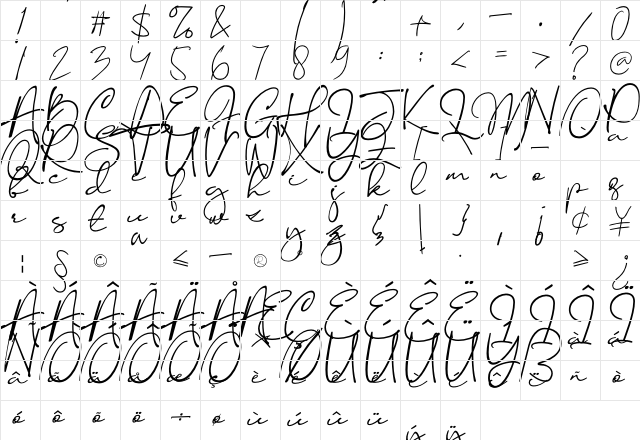 ! # $ % & ( ) + , - . / 0
1 2 3 4 5 6 7 8 9 : ; < = > ? @
A B C D E F G H I J K L M N O P
Q R S T U V W X Y Z _ a
b c d e f g h i j k l m n o p q
r s t u v w x y z { | } ¡ ¢ ¥
¦ § © « - ® »
¿ À Á Â Ã Ä Å Æ Ç È É Ê Ë Ì Í Î Ï
Ñ Ò Ó Ô Õ Ö Ø Ù Ú Û Ü Ý ß à á
â ã ä å æ ç è é ê ë ì í î ï ñ ò
ó ô õ ö ÷ ø ù ú û ü ý ÿ